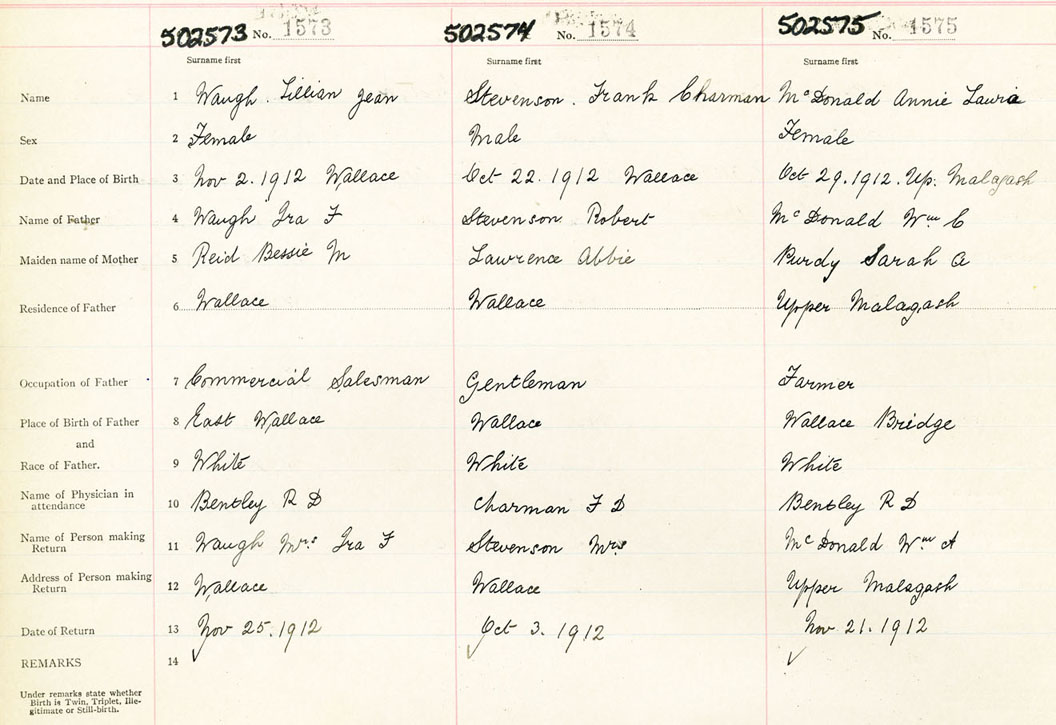 502573 No. 1573 502574 No. 1574 502575 No. 1575
Surname first Surname first Surname first
Name 1 Waugh. Lillian Jean Stevenson. Frank Charman McDonald Annie Lauria
Sex 2 Female Male Female
Date and Place of Birth 3 Nov 2. 1912 Wallace Oct 22. 1912 Wallace Oct 29. 1912. Up. Malagash
Name of Father 4 Waugh Ira F Stevenson Robert McDonald Wm C
Maiden name of Mother 5 Reid Bessie M Lawrence Abbie Purdy Sarah A
Residence of Father 6 Wallace Wallace Upper Malagash
Occupation of Father 7 Commercial Salesman Gentleman Farmer
Place of Birth of Father 8 East Wallace Wallace Wallace Bridge
and
Race of Father. 9 White White White
Name of Physician in
attendance 10 Bentley R D Charman F D Bentley R D
Name of Person making
Return 11 Waugh Mrs Ira F Stevenson Mrs McDonald Wm A
Address of Person making
Return 12 Wallace Wallace Upper Malagash
Date of Return 13 Nov 25. 1912 Oct 3. 1912 Nov 21. 1912
REMARKS 14
Under remarks state whether
Birth is Twin, Triplet, Ille-
gitimate or Still-birth.